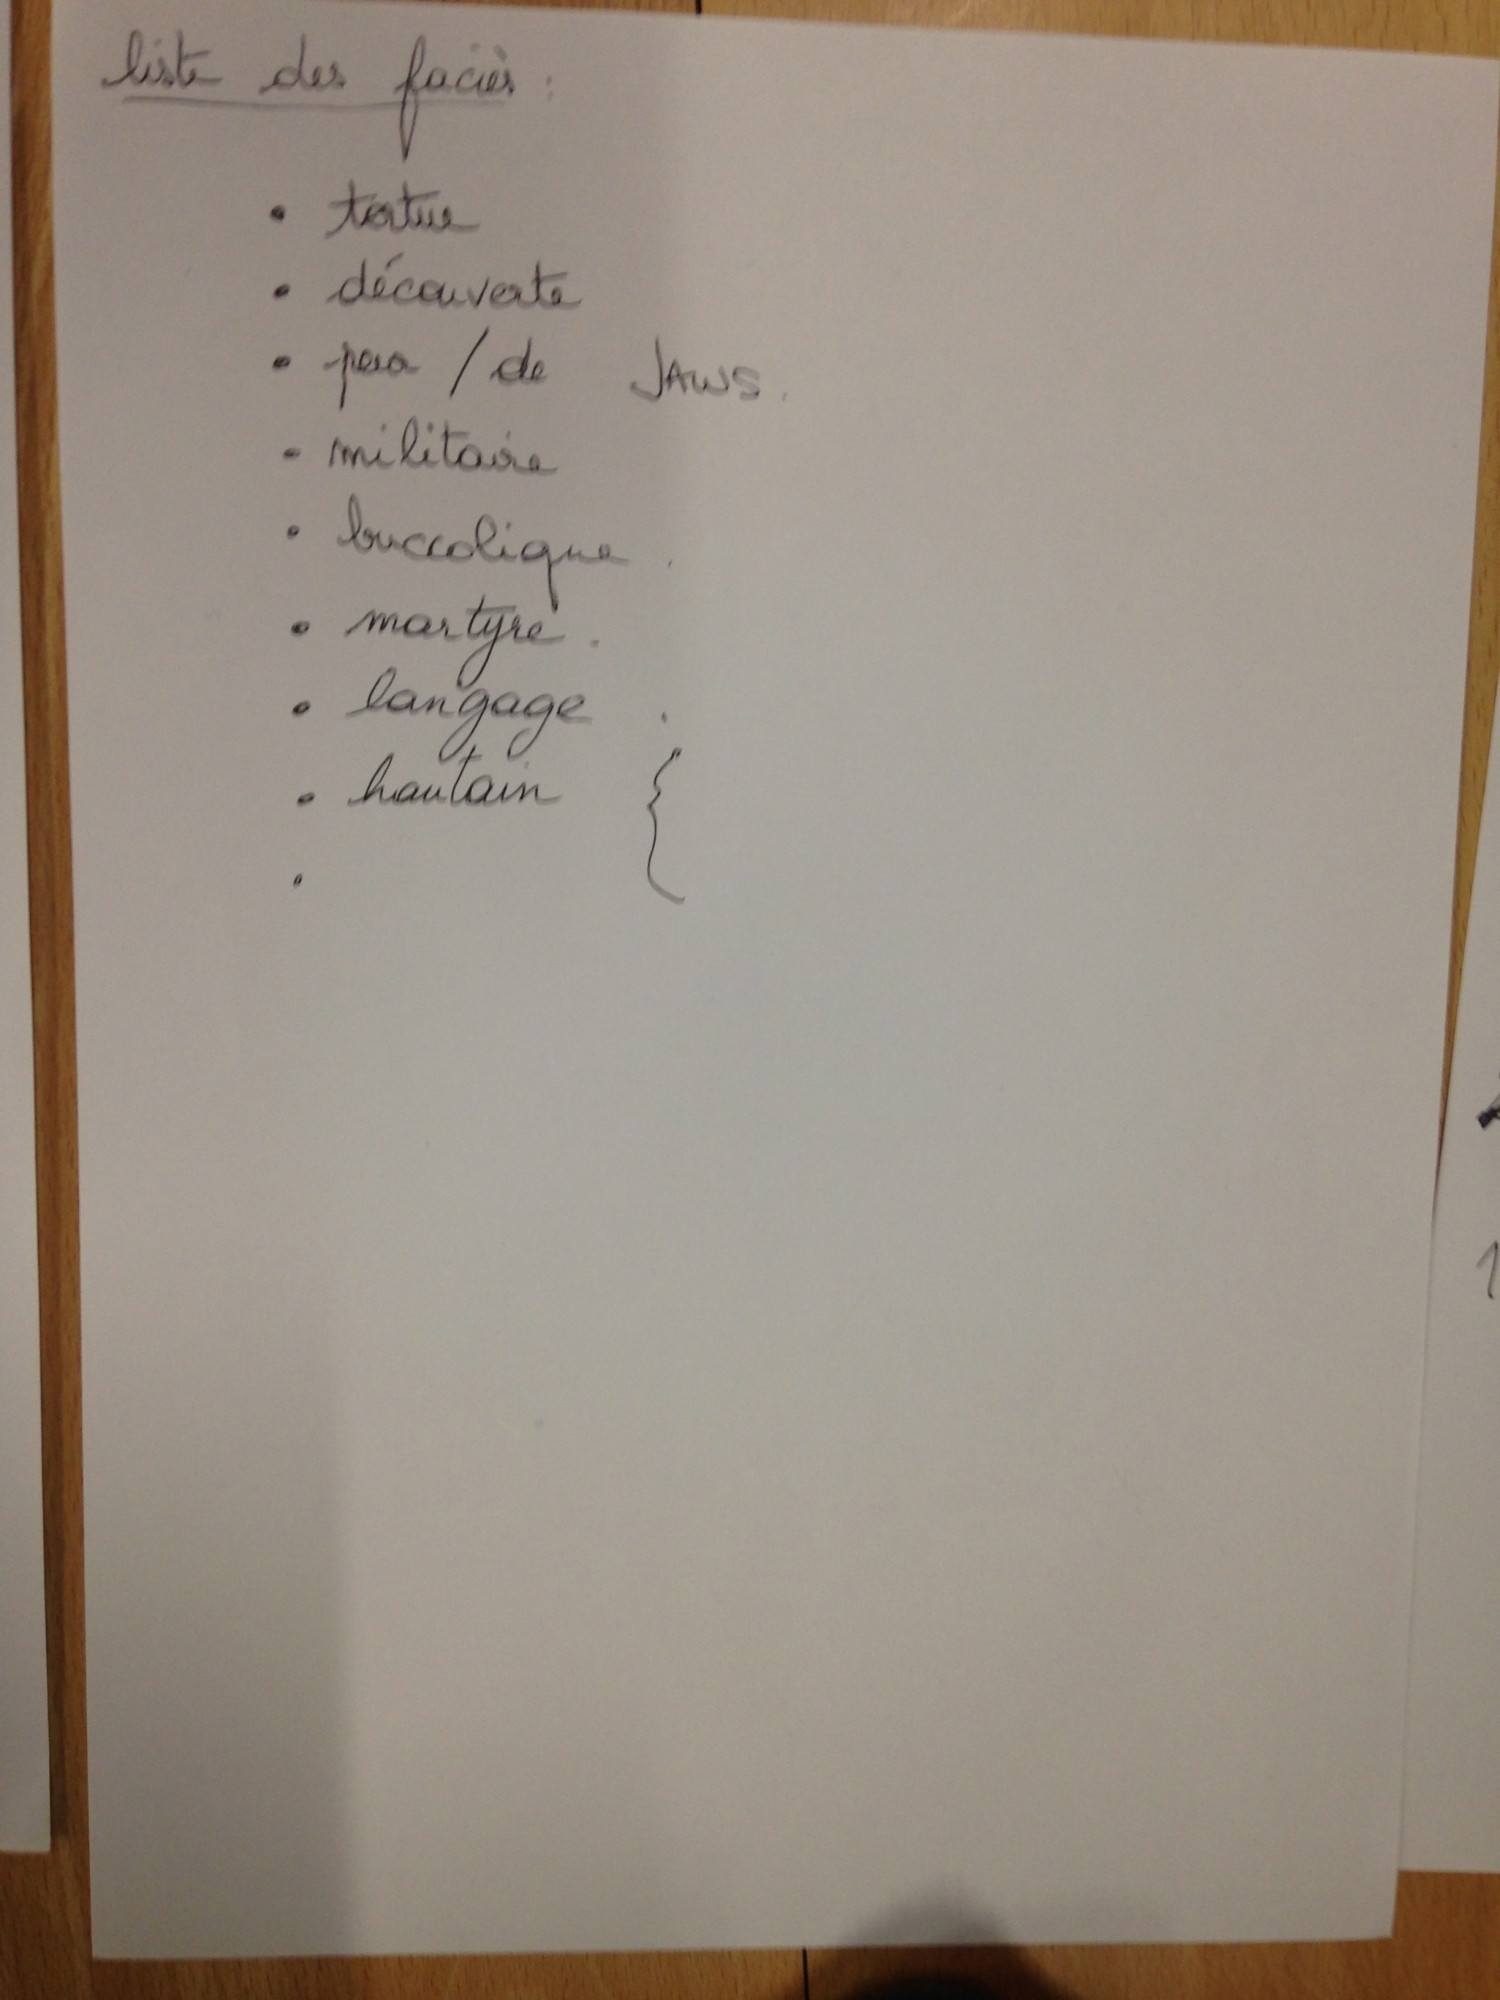 liste des faciès :
• tortue
• découverte
• / de JAWS.
• militaire
• buccolique .
• martyre .
• langage .
• hautain {
•
1